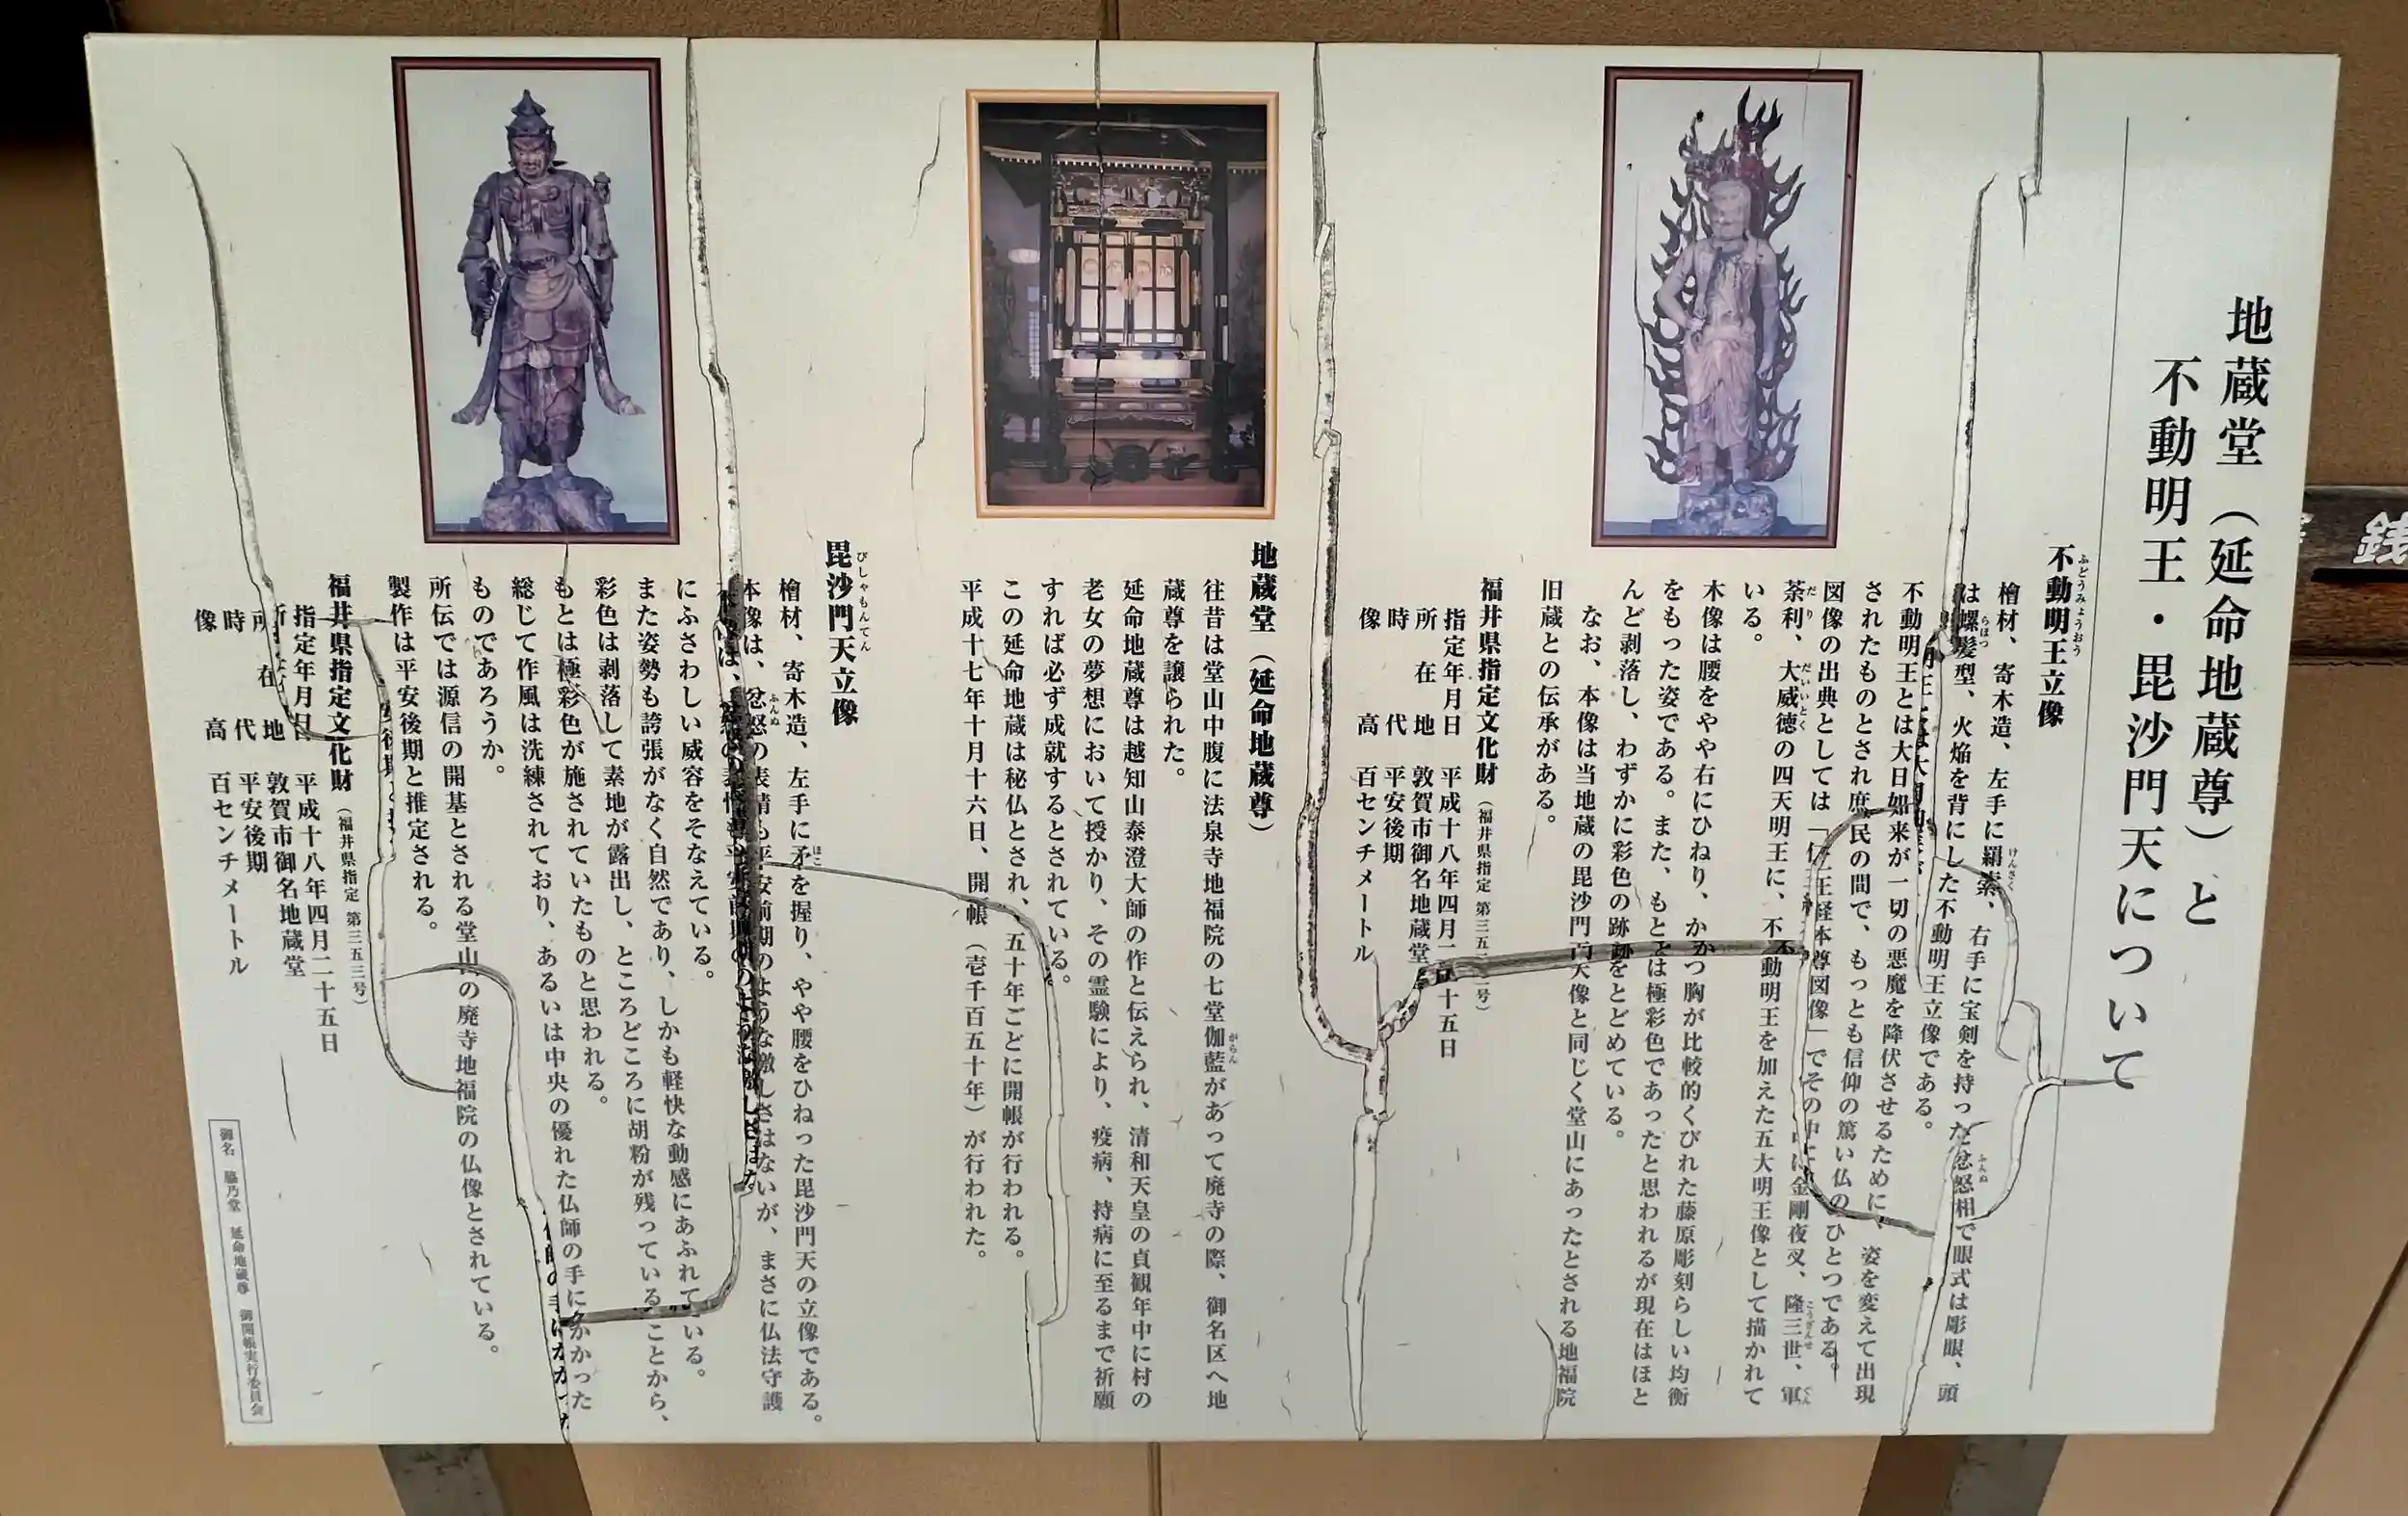 地蔵堂（延命地蔵尊）と
不動明王・毘沙門天について
不動明王立像
ふどうみょうおう
檜材、寄木造、左手に羂索、右手に宝剣を持った忿怒相で眼式は彫眼、頭
けんさく
ふんぬ
は螺髪型、火焔を背にした不動明王立像である。
らほつ
不動明王とは大日如来が一切の悪魔を降伏させるために、姿を変えて出現
されたものとされ庶民の間で、もっとも信仰の篤い仏のひとつである。
図像の出典としては「仁王経本尊図像」でその中には金剛夜叉、隆三世、軍
こうざんせ
ぐん
茶利、大威徳の四天明王に、不動明王を加えた五大明王像として描かれて
だり
だいいとく
いる。
木像は腰をやや右にひねり、かつ胸が比較的くびれた藤原彫刻らしい均衡
をもった姿である。また、もとは極彩色であったと思われるが現在はほと
んど剥落し、わずかに彩色の跡をとどめている。
なお、本像は当地蔵の毘沙門天像と同じく堂山にあったとされる地福院
旧蔵との伝承がある。
福井県指定文化財（福井県指定 第三五二号）
指定年月日 平成十八年四月二十五日
所在地 敦賀市御名地蔵堂
時代 平安後期
像高 百センチメートル
地蔵堂（延命地蔵尊）
往昔は堂山中腹に法泉寺地福院の七堂伽藍があって廃寺の際、御名区へ地
がらん
蔵尊を譲られた。
延命地蔵尊は越知山泰澄大師の作と伝えられ、清和天皇の貞観年中に村の
老女の夢想において授かり、その霊験により、疫病、持病に至るまで祈願
すれば必ず成就するとされている。
この延命地蔵は秘仏とされ、五十年ごとに開帳が行われる。
平成十七年十月十六日、開帳（壱千百五十年）が行われた。
毘沙門天立像
びしゃもんてん
檜材、寄木造、左手に矛を握り、やや腰をひねった毘沙門天の立像である。
ほこ
本像は、忿怒の表情も平安前期のような激しさはないが、まさに仏法守護
ふんぬ
にふさわしい威容をそなえている。
また姿勢も誇張がなく自然であり、しかも軽快な動感にあふれている。
彩色は剥落して素地が露出し、ところどころに胡粉が残っていることから、
もとは極彩色が施されていたものと思われる。
総じて作風は洗練されており、あるいは中央の優れた仏師の手にかかった
ものであろうか。
所伝では源信の開基とされる堂山の廃寺地福院の仏像とされている。
製作は平安後期と推定される。
福井県指定文化財（福井県指定 第三五三号）
指定年月日 平成十八年四月二十五日
所在地 敦賀市御名地蔵堂
時代 平安後期
像高 百センチメートル
御名 脇乃堂 延命地蔵尊 御開帳実行委員会
銭